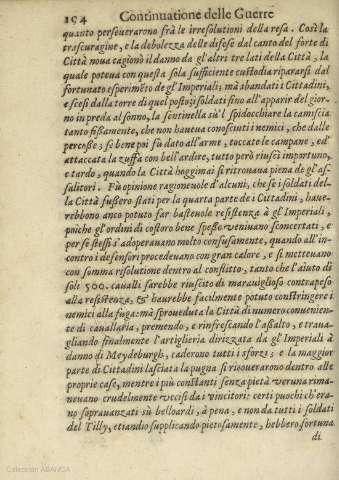 194 Continuatione delle Guerre
quanto perseuerarono frà le irresolutioni della resa. Così la
trascuragine, e la debolezza delle difese dal canto del forte di
Città noua cagionò il danno da gl'altri tre lati della Città, la
quale poteua con questa sola sufficiente custodia ripararsi dal
fortunato esperimẽto de gl'Imperiali; mà sbandati i Cittadini,
e scesi dalla torre di quel posto i soldati sino all'apparir del gior-
no in preda al sonno, la sentinella sù'l spidocchiare la camiscia
tanto fissamente, che non haueua conosciuti i nemici, che dalle
percosse; se bene poi fù dato all'arme, toccate le campane, ed'
attaccata la zuffa con bell'ardire, tutto però riuscì importuno,
e tardo, quando la Città hoggimai si ritrouaua piena de gl'as-
salitori. Fù opinione ragioneuole d'alcuni, che se i soldati del-
la Città fussero stati per la quarta parte de i Cittadini, haue-
rebbono anco potuto far basteuole resistenza à gl'Imperiali,
poiche gl'ordini di costoro bene spesso veniuano sconcertati, e
per se stessi s'adoperauano molto confusamente, quando all'in-
contro i defensori procedeuano con gran calore, e si metteuano
con somma risolutione dentro al conflitto, tanto che l'aiuto di
soli 500. caualli sarebbe riuscito di marauiglioso contrapeso
alla resistenza, & haurebbe facilmente potuto constringere i
nemici alla fuga: mà sproueduta la Città di numero conueniente
di cauallaria, premendo, e rinfrescando l'assalto, e traua-
gliando finalmente l'artiglieria dirizzata da gl'Imperiali à
danno di Meydeburgh, caderono tutti i sforzi; e la maggior
parte di Cittadini lasciata la pugna si ricouerarono dentro alle
proprie case, mentre i più constanti senza pietà veruna rima-
neuano crudelmente vccisi da i vincitori: certi puochi ch'era-
no soprauanzati sù belloardi, à pena, e non da tutti i soldati
del Tilly, etiandio supplicando pietosamente, hebbero fortuna
di
Colección ABANCA